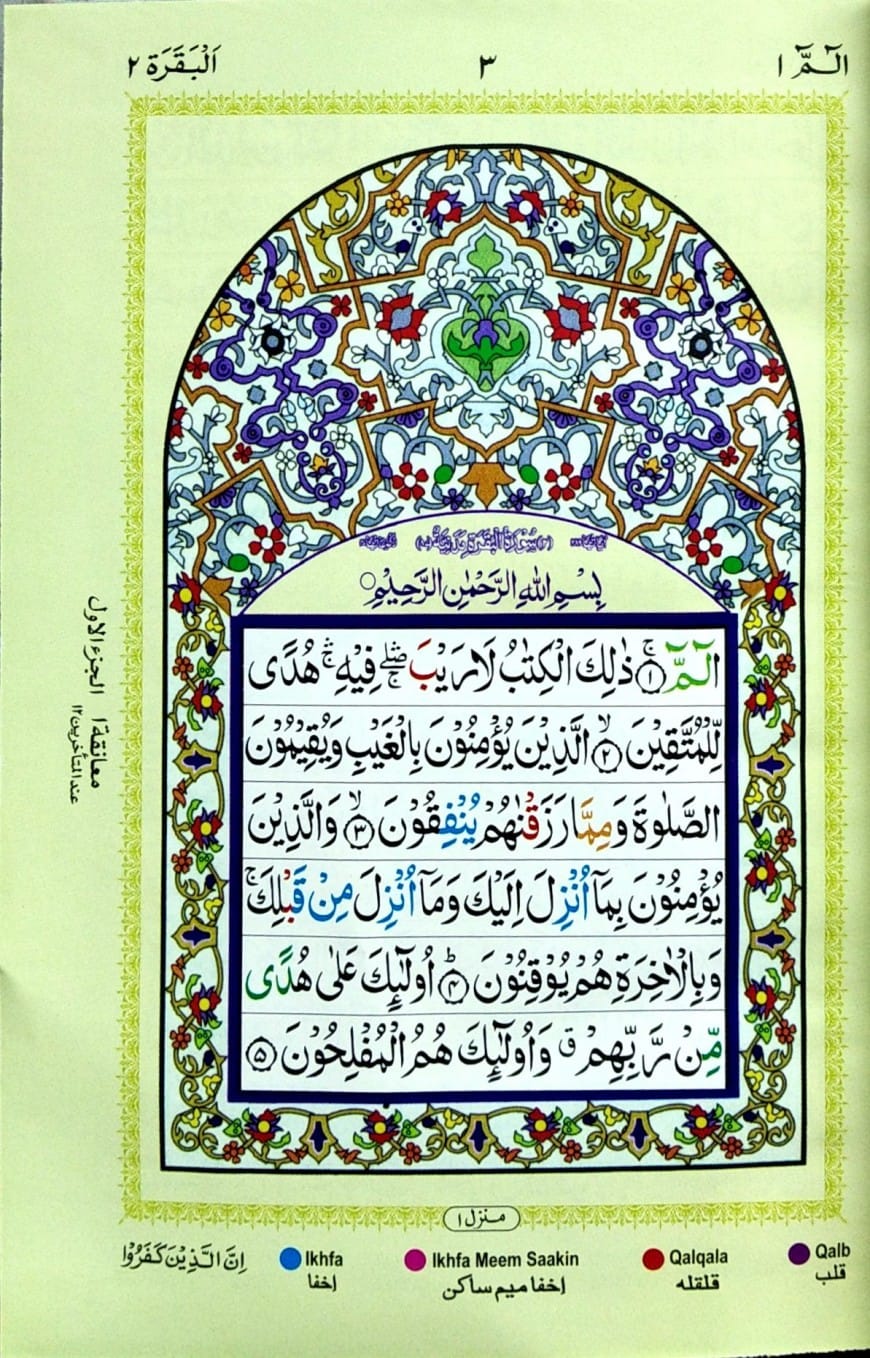 الٓـمّٓ ١ ٣ اَلْبَقَرَة ٢
سُوْرَةُ الْبَقَرَةِ مَدَنِيَّةٌ
بِسْمِ اللّٰهِ الرَّحْمٰنِ الرَّحِيْمِ ○
الٓمّٓ ۚ﴿۱﴾ ذٰلِكَ الْكِتٰبُ لَا رَيْبَ ۛۖۚ فِيْهِ ۛۚ هُدًى
لِّلْمُتَّقِيْنَ ۙ﴿۲﴾ الَّذِيْنَ يُؤْمِنُوْنَ بِالْغَيْبِ وَيُقِيْمُوْنَ
الصَّلٰوةَ وَمِمَّا رَزَقْنٰهُمْ يُنْفِقُوْنَ ۙ﴿۳﴾ وَالَّذِيْنَ
يُؤْمِنُوْنَ بِمَاۤ اُنْزِلَ اِلَيْكَ وَمَاۤ اُنْزِلَ مِنْ قَبْلِكَ ۚ
وَبِالْاٰخِرَةِ هُمْ يُوْقِنُوْنَ ؕ﴿۴﴾ اُولٰٓئِكَ عَلٰى هُدًى
مِّنْ رَّبِّهِمْ ۗ وَاُولٰٓئِكَ هُمُ الْمُفْلِحُوْنَ ﴿۵﴾
معانقة ١ الجزء الاول
عند المتأخرين ١٢
منزل ١
اِنَّ الَّذِيْنَ كَفَرُوْا
Ikhfa Ikhfa Meem Saakin Qalqala Qalb
اخفا اخفا میم ساکن قلقله قلب